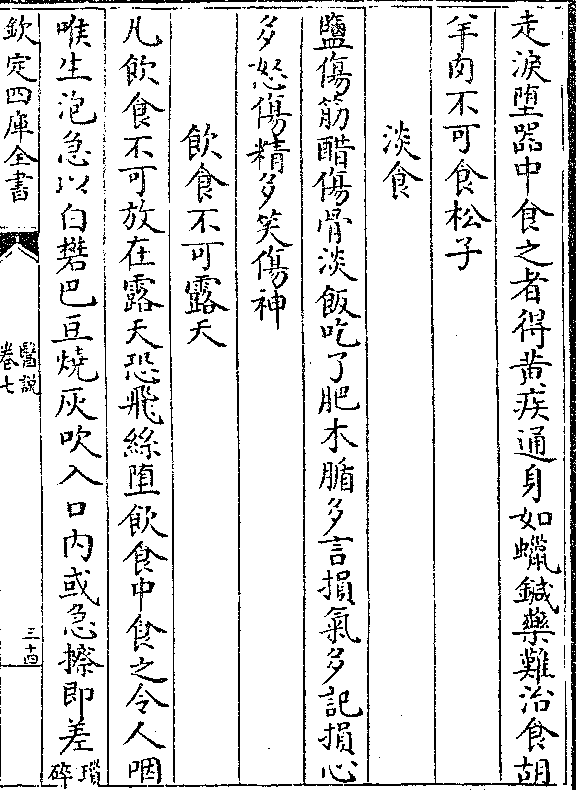 走淚堕器中食之者得黄疾通身如蠟鍼藥難治食胡
羊肉不可食松子
淡食
鹽傷筋醋傷骨淡飯吃了肥木腯多言損氣多記損心
多怒傷精多笑傷神
飲食不可露天
凡飲食不可放在露天恐飛絲堕飲食中食之令人咽
喉生泡急以白礬巴豆燒灰吹入口内或急擦即差瑣碎
欽定四庫全書
醫説
卷七
三十四